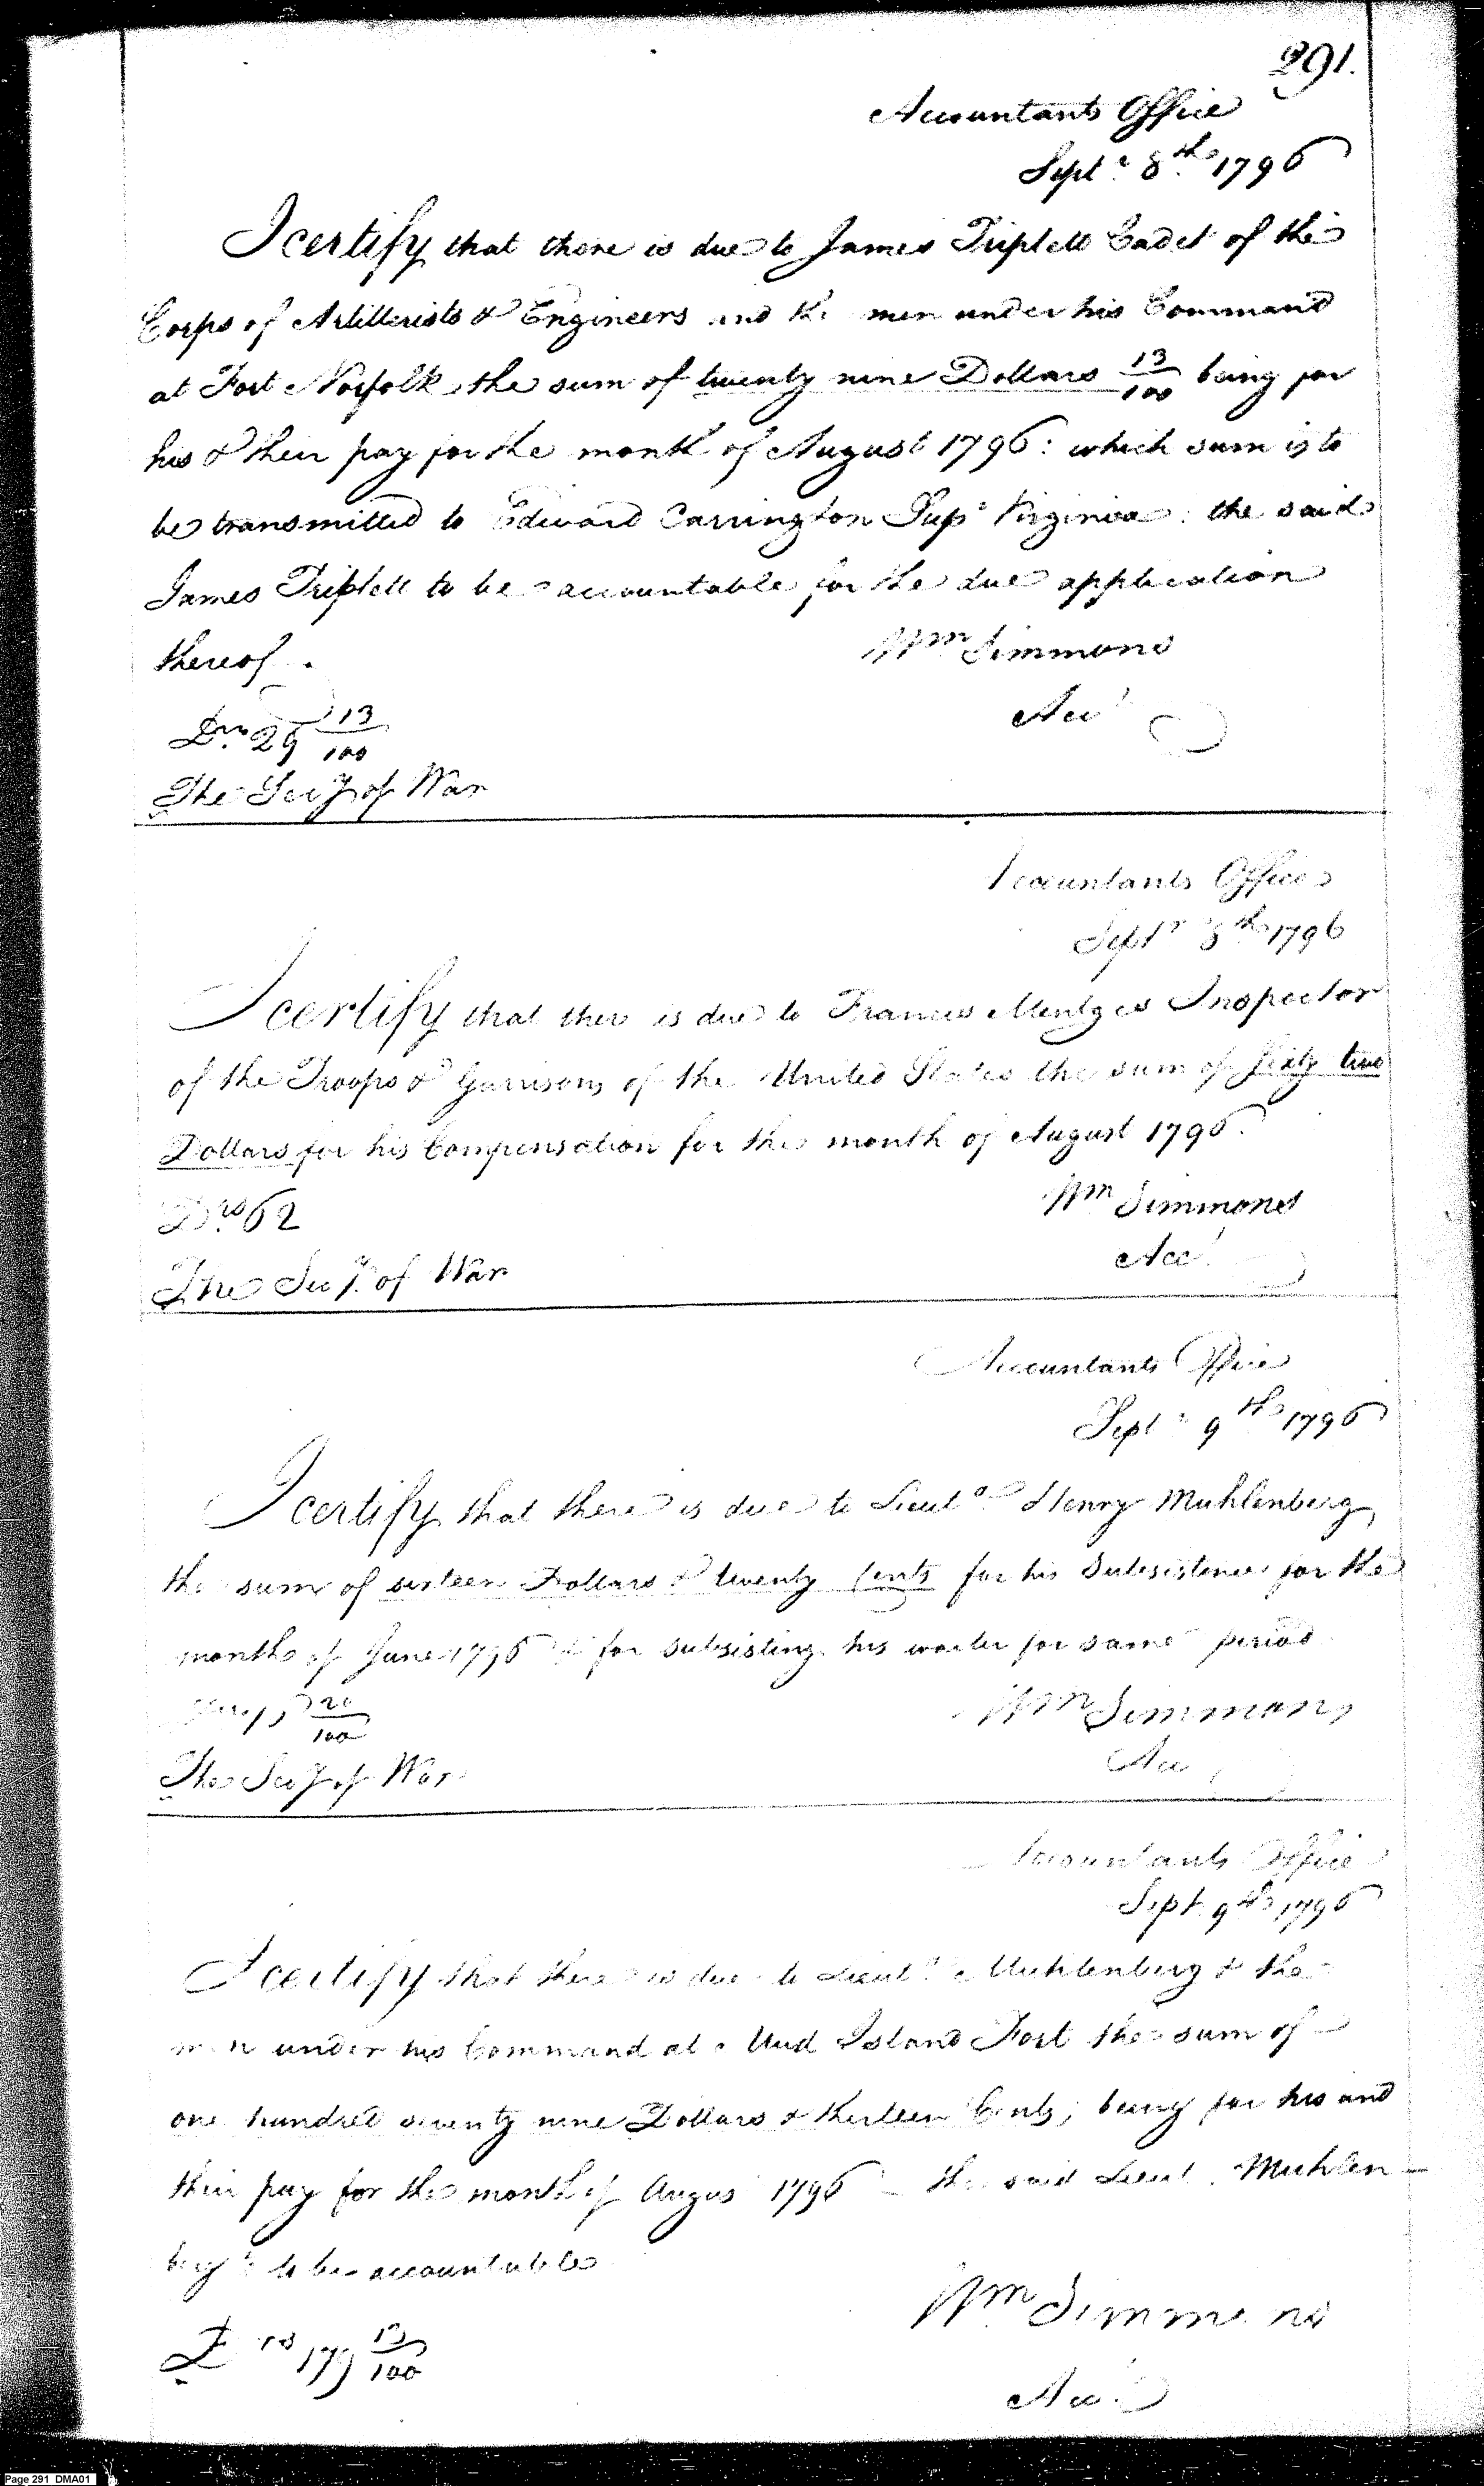 291.
Accountants Office
Septr 8th 1796
I certify that there is due to James Triplett Cadet of the
Corps of Artillerists & Engineers and the men under his Command
at Fort Norfolk the sum of twenty nine Dollars 13/100 being for
his & their pay for the month of August 1796: which sum is to
be transmitted to Edward Carrington Supr Virginia: the said
James Triplett to be accountable for the due application
thereof.
Wm Simmons
Acct
Drs 29 13/100
The Secy of War
Accountants Office
Septr 8th 1796
I certify that there is due to Frances Mentges Inspector
of the Troops & Garrisons of the United States the sum of sixty two
Dollars for his Compensation for the month of August 1796.
Wm Simmons
Drs 62
Acct
The Secy. of War
Accountants Office
Septr 9th 1796
I certify that there is due to Lieut Henry Muhlenberg
the sum of sixteen Dollars & twenty Cents for his Subsistence for the
month of June 1796 & for subsisting his waiter for same period
Wm Simmons
20/100
Acct
The Secy of War
Accountants Office
Sept 9th 1796
I certify that there is due to Lieut. Muhlenberg & the
men under his Command at Mud Island Fort the sum of
one hundred seventy nine Dollars & thirteen Cents, being for his and
their pay for the month of Augus 1796 – the said Lieut. Muhlen-
berg to be accountable
Wm Simmons
Drs 179 13/100
Acct
Page 291 DMA01